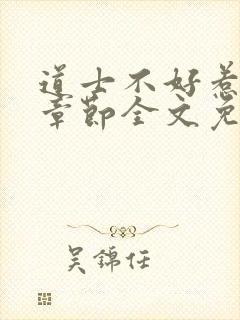 道士不好惹
章节全文免
吴锦任